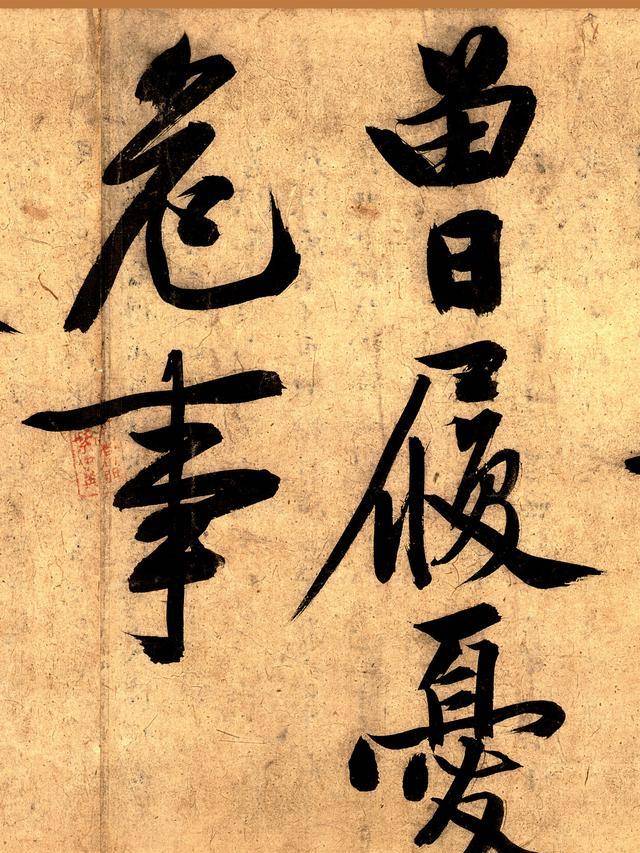 日履憂
危事